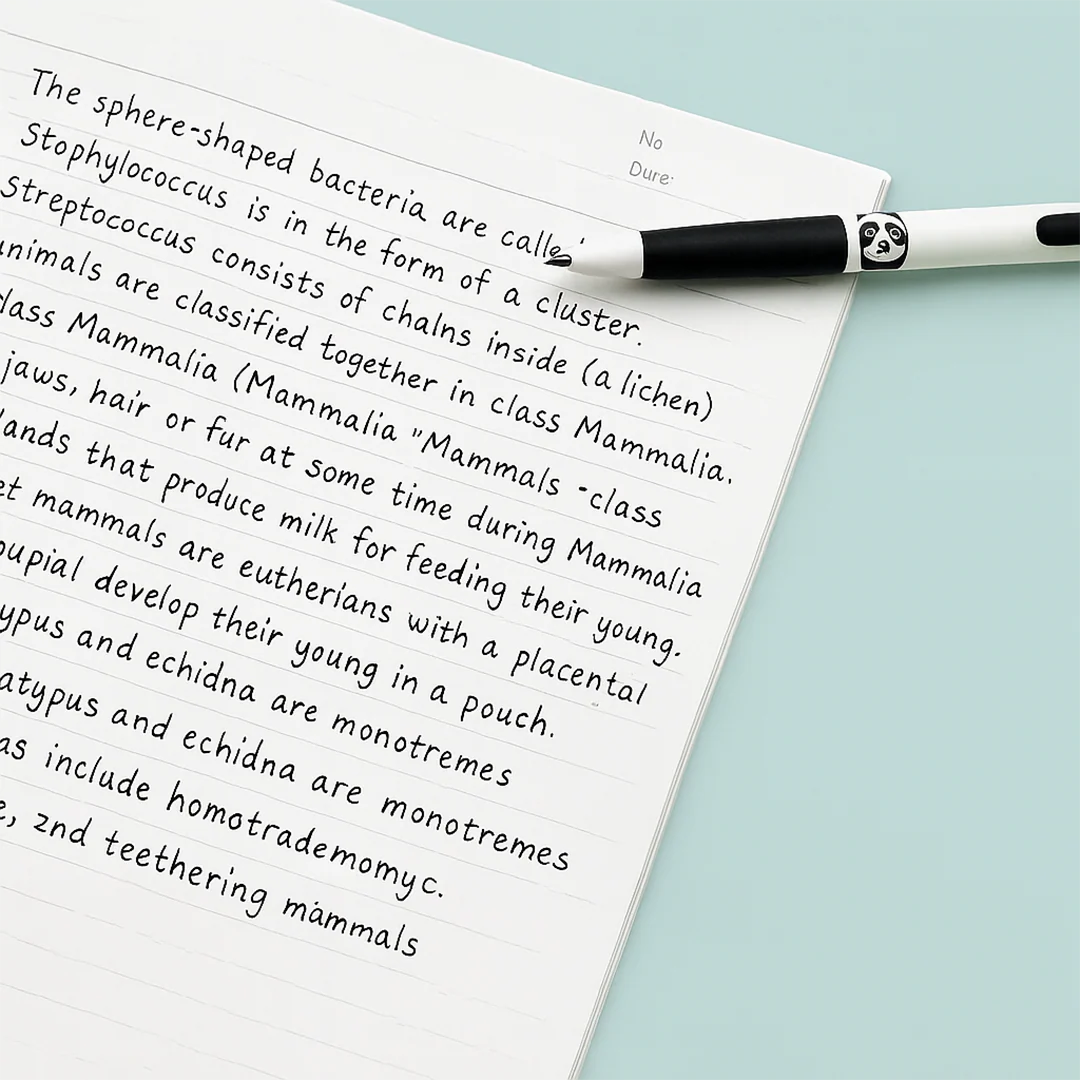 No
Dure:
The sphere-shaped bacteria are calle
Stophylococcus is in the form of a cluster.
Streptococcus consists of chalns inside (a lichen)
animals are classified together in class Mammalia.
lass Mammalia (Mammalia "Mammals -class
jaws, hair or fur at some time during Mammalia
lands that produce milk for feeding their young.
et mammals are eutherians with a placental
oupial develop their young in a pouch.
ypus and echidna are monotremes
atypus and echidna are monotremes
as include homotrademomy c.
e, 2nd teethering mammals